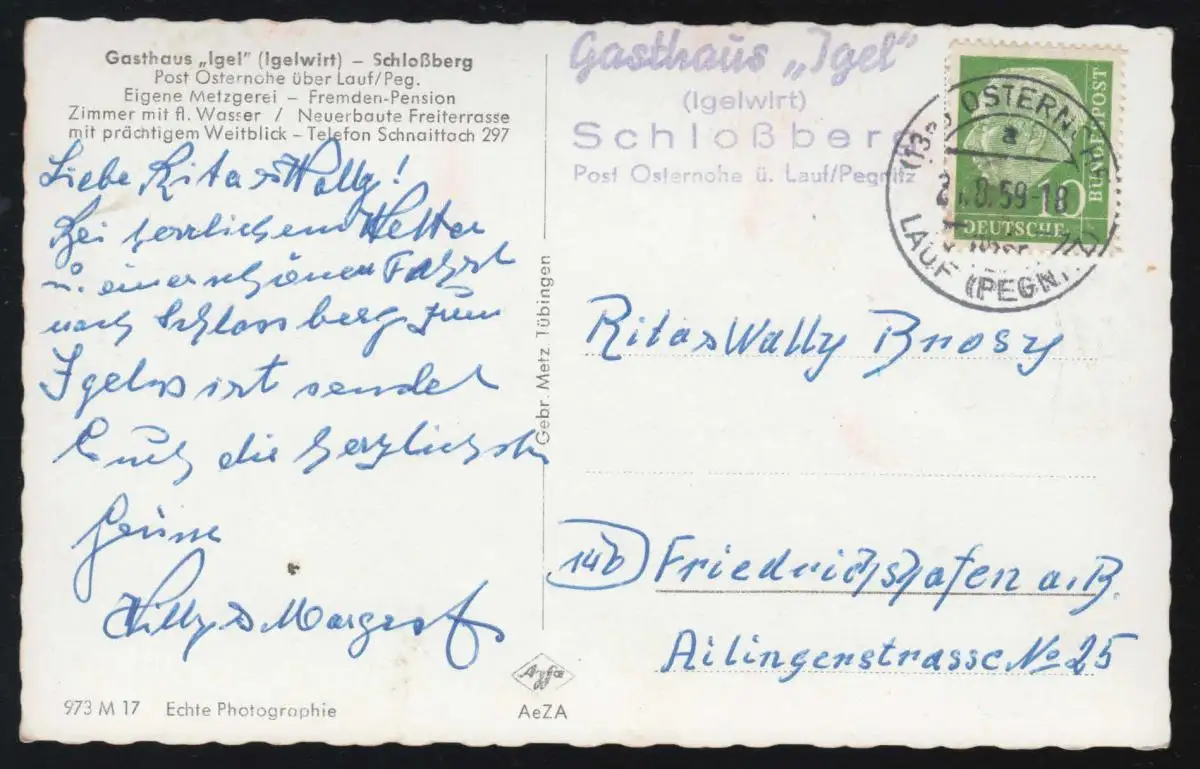 Gasthaus „Igel" (Igelwirt) – Schloßberg
Post Osternohe über Lauf/Peg.
Eigene Metzgerei – Fremden-Pension
Zimmer mit fl. Wasser / Neuerbaute Freiterrasse
mit prächtigem Weitblick – Telefon Schnaittach 297
Liebe Rita & Wally!
Bei herrlichem Wetter
u. einer schönen Fahrt
nach Schlossberg zum
Igelwirt sendet
Euch die herzlichsten
Grüsse
Willy & Margret
973 M 17 Echte Photographie
Gebr. Metz, Tübingen
Agfa
AeZA
Gasthaus „Igel"
(Igelwirt)
Schloßberg
Post Osternohe ü. Lauf/Pegnitz
a
.8.59-18
LAUF (PEGN.)
10
BUNDESPOST
DEUTSCHE
Rita & Wally Brosy
14b Friedrichshafen a. B.
Ailingerstrasse No 25